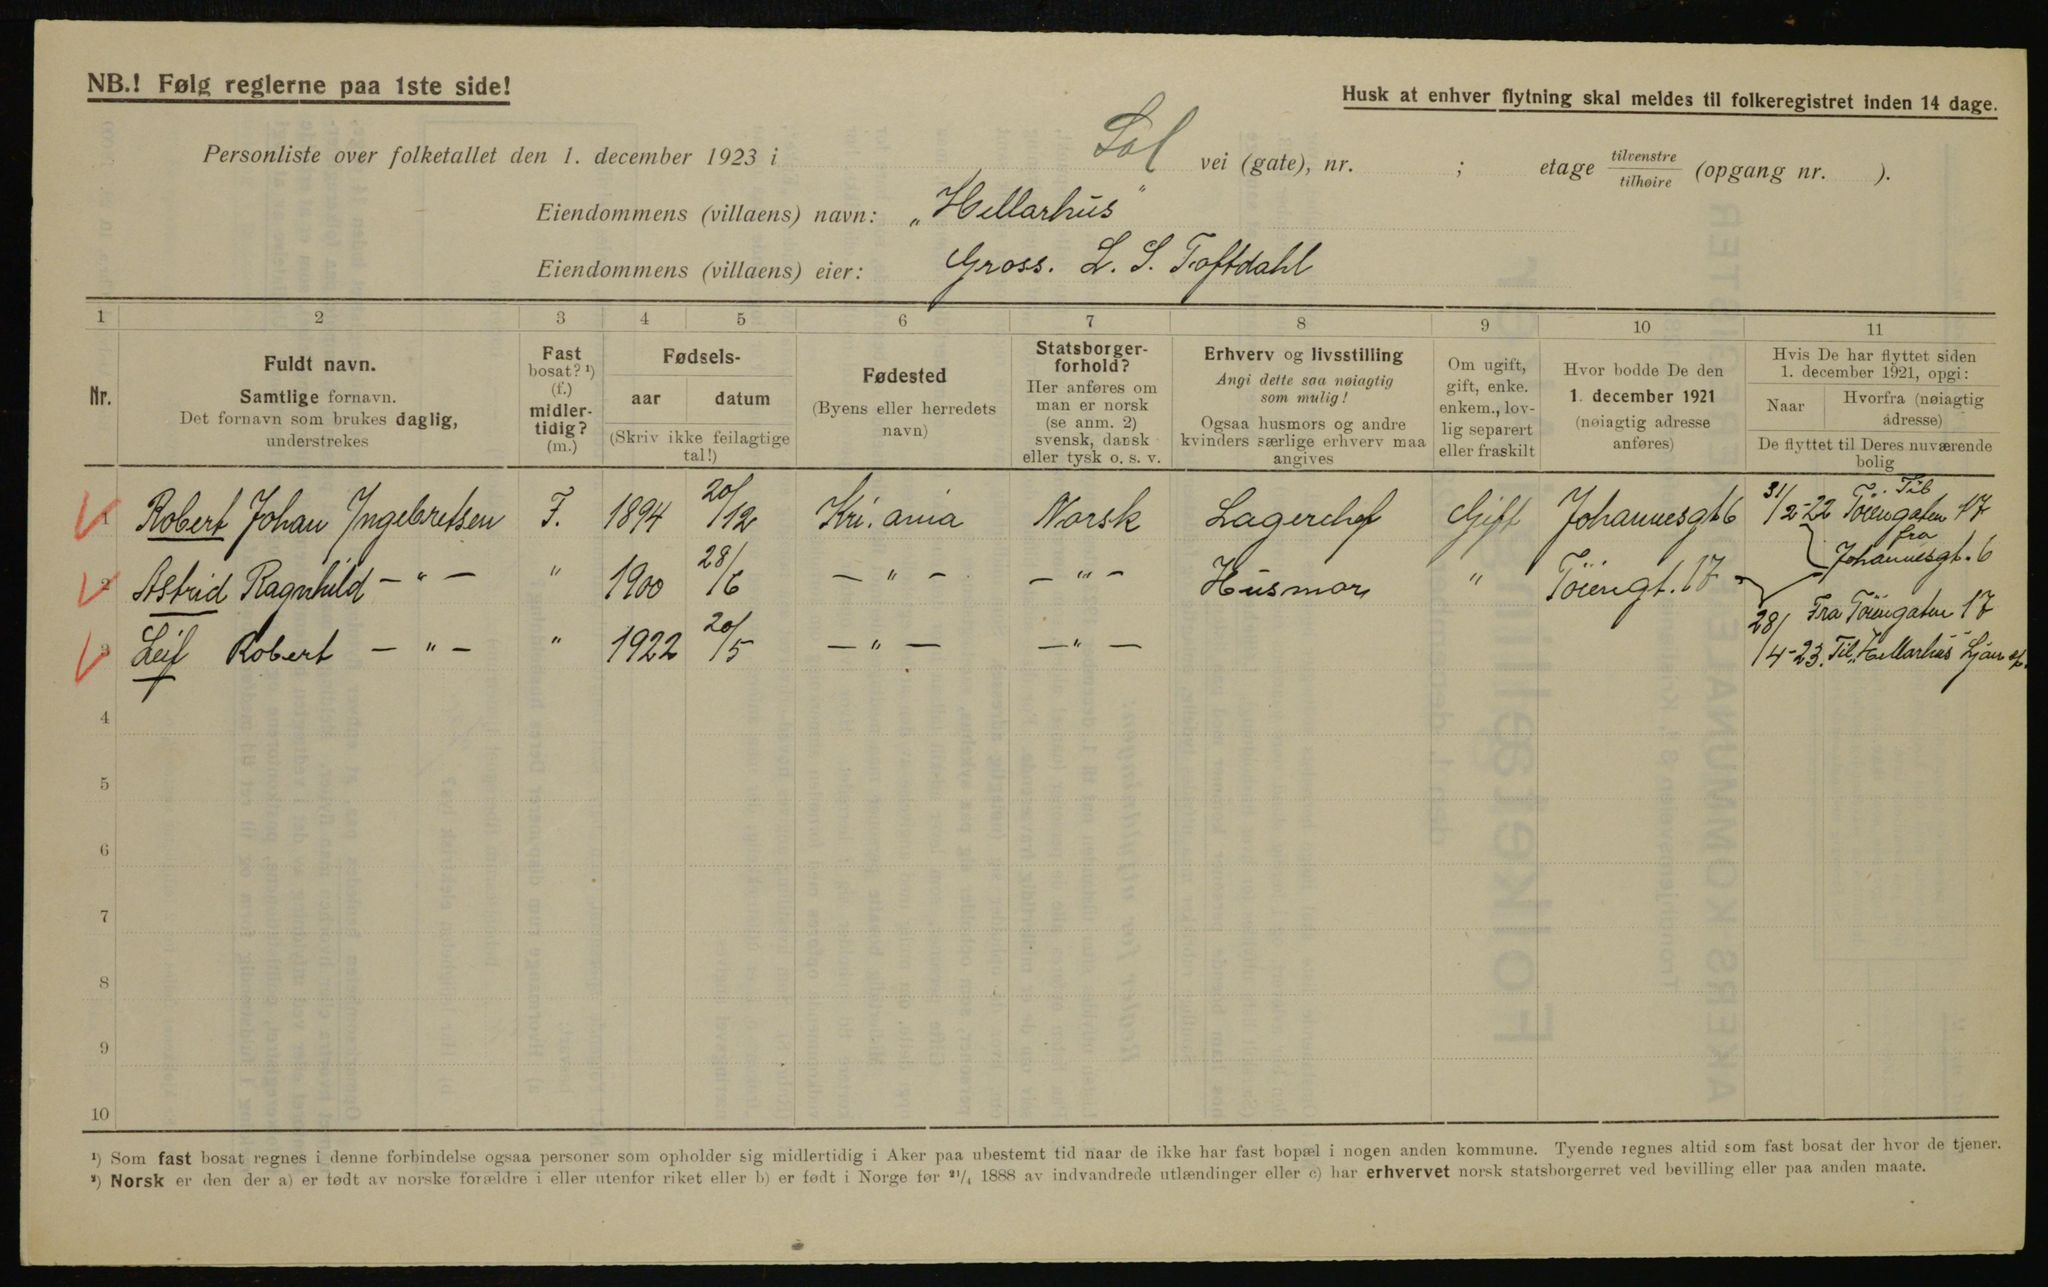 NB.! Følg reglerne paa 1ste side!
Husk at enhver flytning skal meldes til folkeregistret inden 14 dage.
Personliste over folketallet den 1. december 1923 i Sol vei (gate), nr. ; etage tilvenstre/tilhøire (opgang nr. ).
Eiendommens (villaens) navn: „Hellarhus"
Eiendommens (villaens) eier: Gross. L. S. Toftdahl
1 2 3 4 5 6 7 8 9 10 11
Nr.
Fuldt navn.
Samtlige fornavn.
Det fornavn som brukes daglig,
understrekes
Fast
bosat? ¹)
(f.)
midler-
tidig?
(m.)
Fødsels-
aar datum
(Skriv ikke feilagtige
tal!)
Fødested
(Byens eller herredets
navn)
Statsborger-
forhold?
Her anføres om
man er norsk
(se anm. 2)
svensk, dansk
eller tysk o. s. v.
Erhverv og livsstilling
Angi dette saa nøiagtig
som mulig!
Ogsaa husmors og andre
kvinders særlige erhverv maa
angives
Om ugift,
gift, enke.
enkem., lov-
lig separert
eller fraskilt
Hvor bodde De den
1. december 1921
(nøiagtig adresse
anføres)
Hvis De har flyttet siden
1. december 1921, opgi:
Naar
Hvorfra (nøiagtig
adresse)
De flyttet til Deres nuværende
bolig
1 Robert Johan Ingebretsen F. 1894 20/12 Kri.ania Norsk Lagerchef Gift Johannesgt 6 31/2-22 Til Töiengaten 17
fra
Johannesgt. 6
2 Astrid Ragnhild — " — " 1900 28/6 — " — — " — Husmor " Töiengt. 17
28/4-23. Fra Töiengaten 17
Til „Hellarhus"
3 Leif Robert — " — " 1922 20/5 — " — — " —
4
5
6
7
8
9
10
¹) Som fast bosat regnes i denne forbindelse ogsaa personer som opholder sig midlertidig i Aker paa ubestemt tid naar de ikke har fast bopæl i nogen anden kommune. Tyende regnes altid som fast bosat der hvor de tjener.
²) Norsk er den der a) er født av norske forældre i eller utenfor riket eller b) er født i Norge før 21/4 1888 av indvandrede utlændinger eller c) har erhvervet norsk statsborgerret ved bevilling eller paa anden maate.